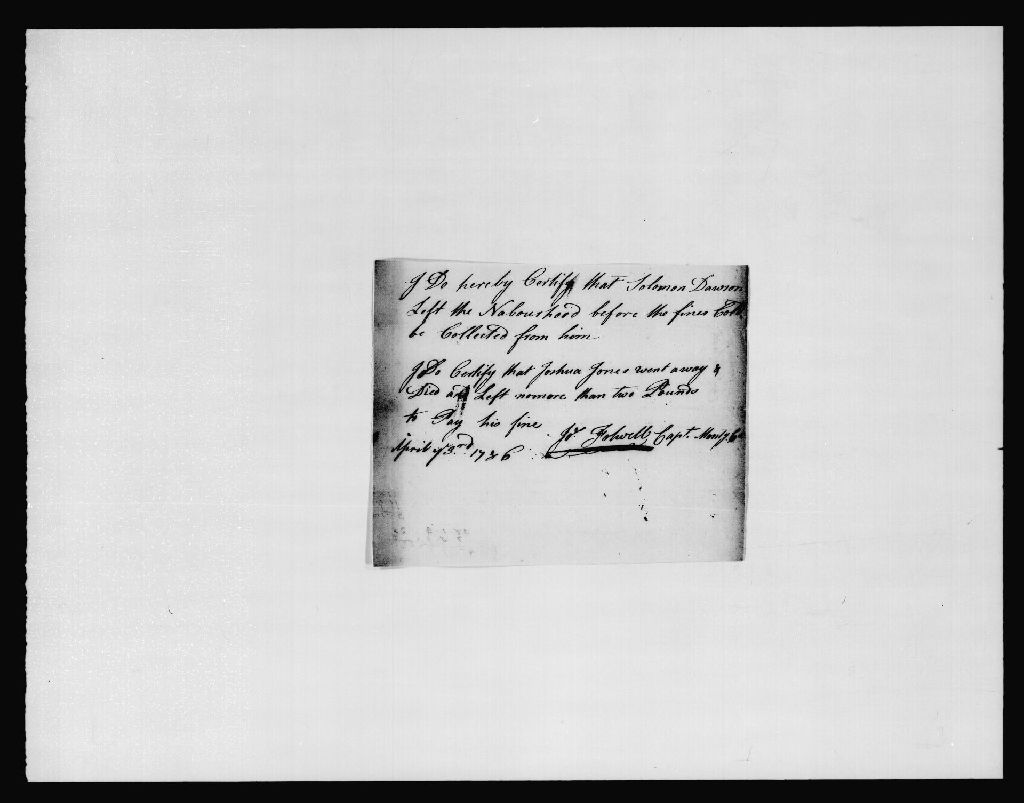 I Do hereby Certify that Solomon Dawson
Left the Nabourhood before the fines Cold
be Collected from him
I Do Certify that Joshua Jones went away &
Died and Left nomore than two Pounds
to Pay his fine
Jos. Folwell Capt. Montg. Co
April ye 3rd 1786